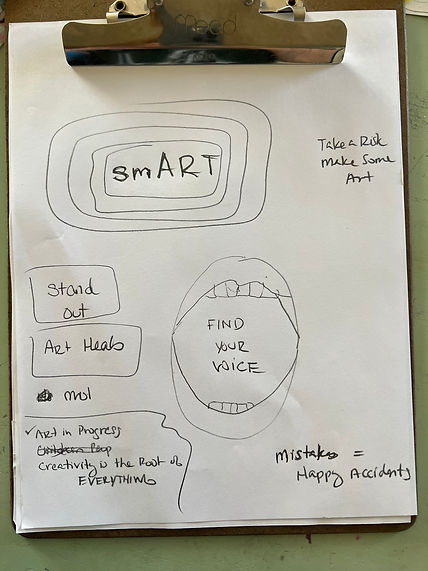 mead
smART
Take a Risk
make Some
Art
Stand
out
Art Heals
FIND
YOUR
VOICE
mol
✓ Art in Progress
Creativity is the Root of
EVERYTHING
mistakes =
Happy Accidents